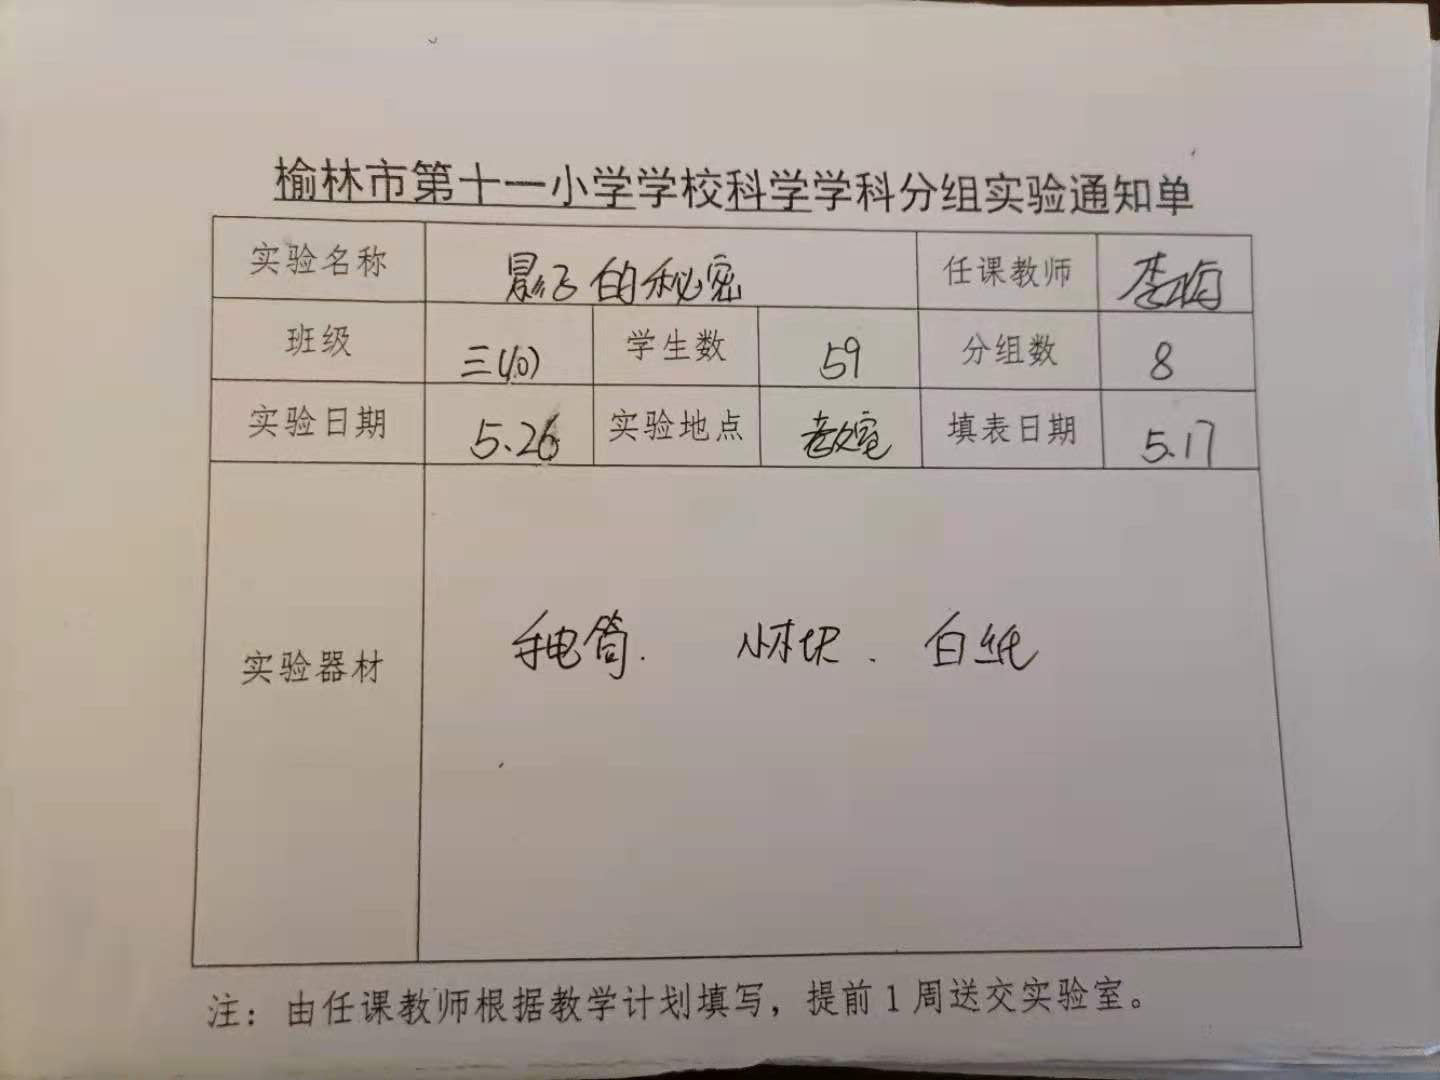 榆林市第十一小学学校科学学科分组实验通知单
实验名称 影子的秘密 任课教师 李梅
班级 三(10) 学生数 59 分组数 8
实验日期 5.26 实验地点 教室 填表日期 5.17
实验器材 手电筒. 小木块. 白纸
注：由任课教师根据教学计划填写，提前1周送交实验室。